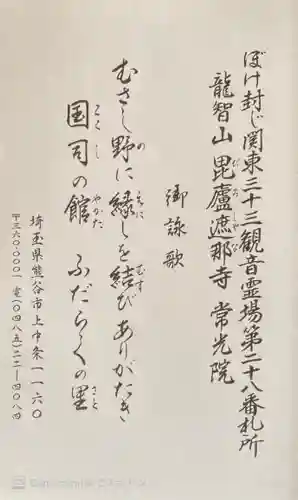 ぼけ封じ関東三十三観音霊場第二十八番札所
龍智山毘盧遮那寺 常光院
御詠歌
むさし野に縁しを結びありがたき
国司の館 ふだらくの里
埼玉県熊谷市上中条一一六〇
〒三六〇-〇〇〇一 電(〇四八五)二二-四〇八四